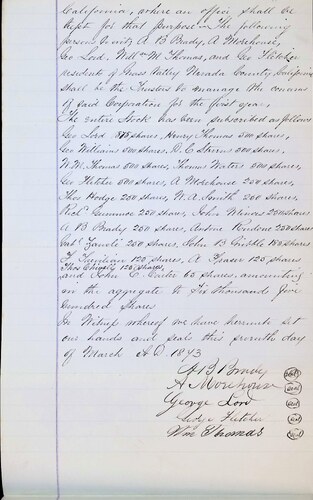 California, where an office shall be
kept for that purpose. The following
persons to wit; A. B. Brady, A Morehouse,
Geo Lord, Will M. Thomas, and Geo Fletcher
residents of Grass Valley Nevada County, California
Shall be the Trustees to manage the concerns
of said Corporation for the first year.
The entire Stock has been subscribed as follows
Geo Lord shares, Henry Thomas 500 shares,
Geo Williams 500 shares, D. C. Stevens 500 shares,
W. M. Thomas 500 shares, Thomas Waters 500 shares,
Geo Fletcher 500 shares, A Morehouse 250 shares,
Thos Hodge 250 shares, W. A. Smith 250 shares,
Richd 250 shares, John 250 shares
A B Brady 250 shares, 250 shares
250 shares, John B shares
125 shares, A Fraser 125 shares
Thos 125 shares,
and John E. Carter 65 shares, amounting
in the aggregate to Six thousand five
hundred Shares
In Witness whereof we have hereunto set
our hands and seals this seventh day
of March A.D. 1873
A B Brady seal
A Morehouse seal
George Lord seal
Fletcher seal
Wm Thomas seal